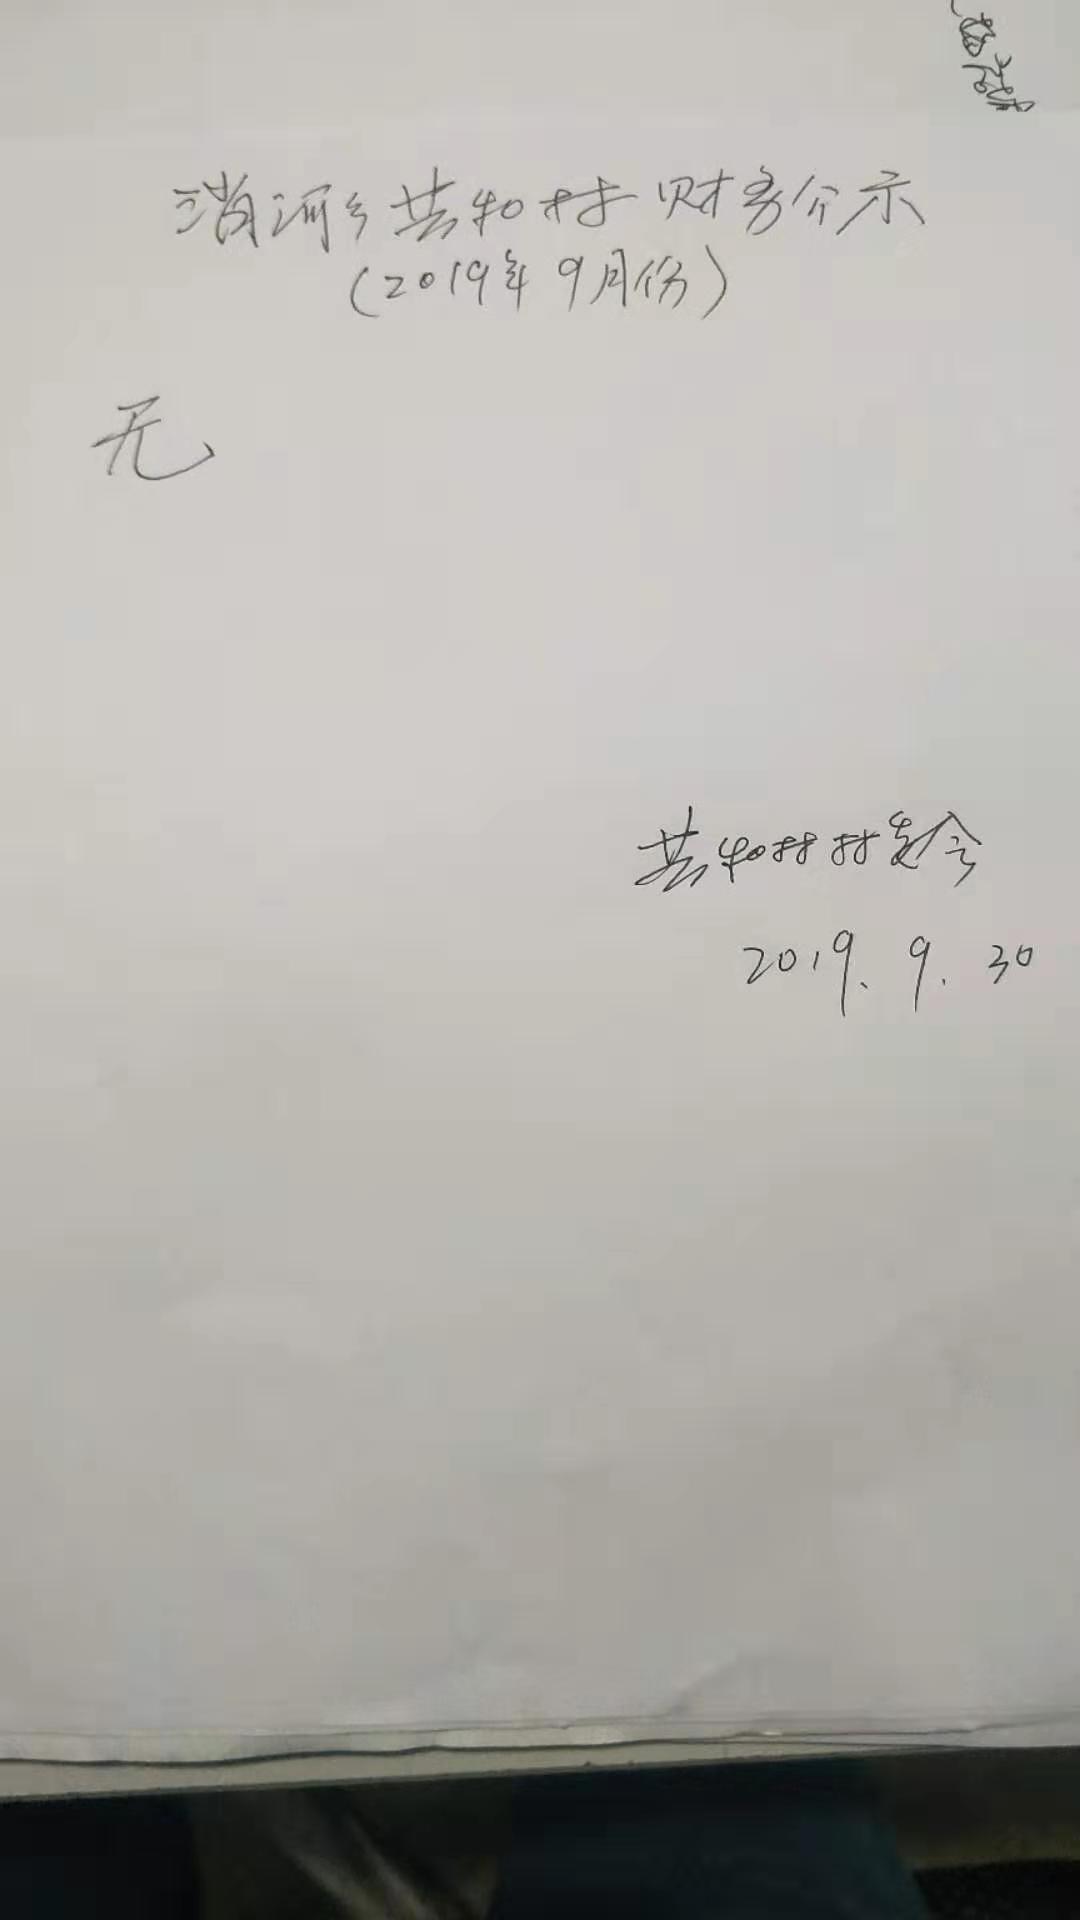 消河乡共和村财务公示
(2019年9月份)
无
共和村村委会
2019.9.30